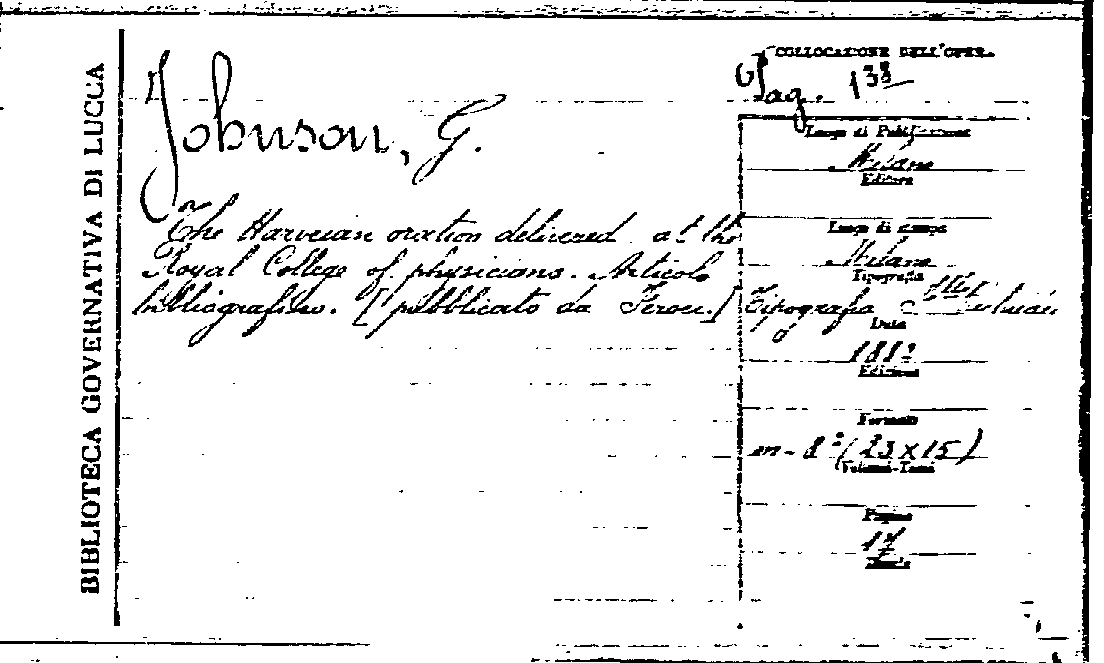 BIBLIOTECA GOVERNATIVA DI LUCCA
Johnson, G.
The Harveian oration delivered at the
Royal College of physicians. Articolo
bibliografico. [pubblicato da
COLLOCAZIONE DELL'OPERA
138
Luogo di Pubblicazione
Milano
Editore
Luogo di stampa
Milano
Tipografia
Tipografia
Data
Edizione
Formato
in-8° (23 x 15)
Volumi-Tomi
Pagine
17